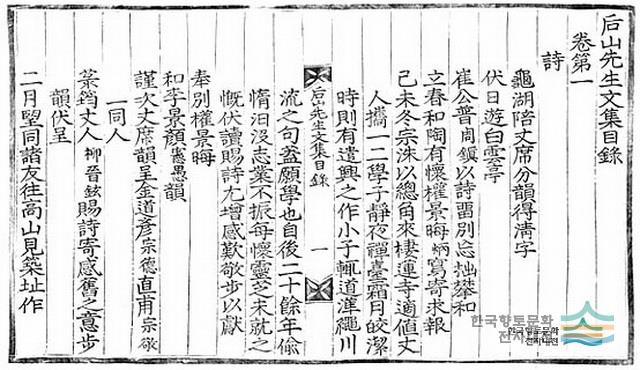 后山先生文集目錄
卷第一
詩
龜湖陪丈席分韻得淸字
伏日遊白雲亭
崔公普周鎭以詩留別忘拙攀和
立春和陶有懷權景晦炳寫寄求報
己未冬宗洙以總角來棲蓮寺適値丈
人攜一二學子靜夜禪臺霜月皎潔
時則有遣興之作小子輒道渾繩川
后山先生文集目錄 一
流之句盖願學也自後二十餘年偸
惰汩沒志業不振每懷靈芝未就之
慨伏讀賜詩尤增感歎敬步以獻
奉別權景晦
和李景顔愚韻
謹次丈席韻呈金道彥宗德直甫宗敬
一同人
丈人柳晉鉉賜詩寄感舊之意步
韻伏呈
二月望同諸友往高山見築址作
한국향토문화
전자대전
한국향토문화
전자대전